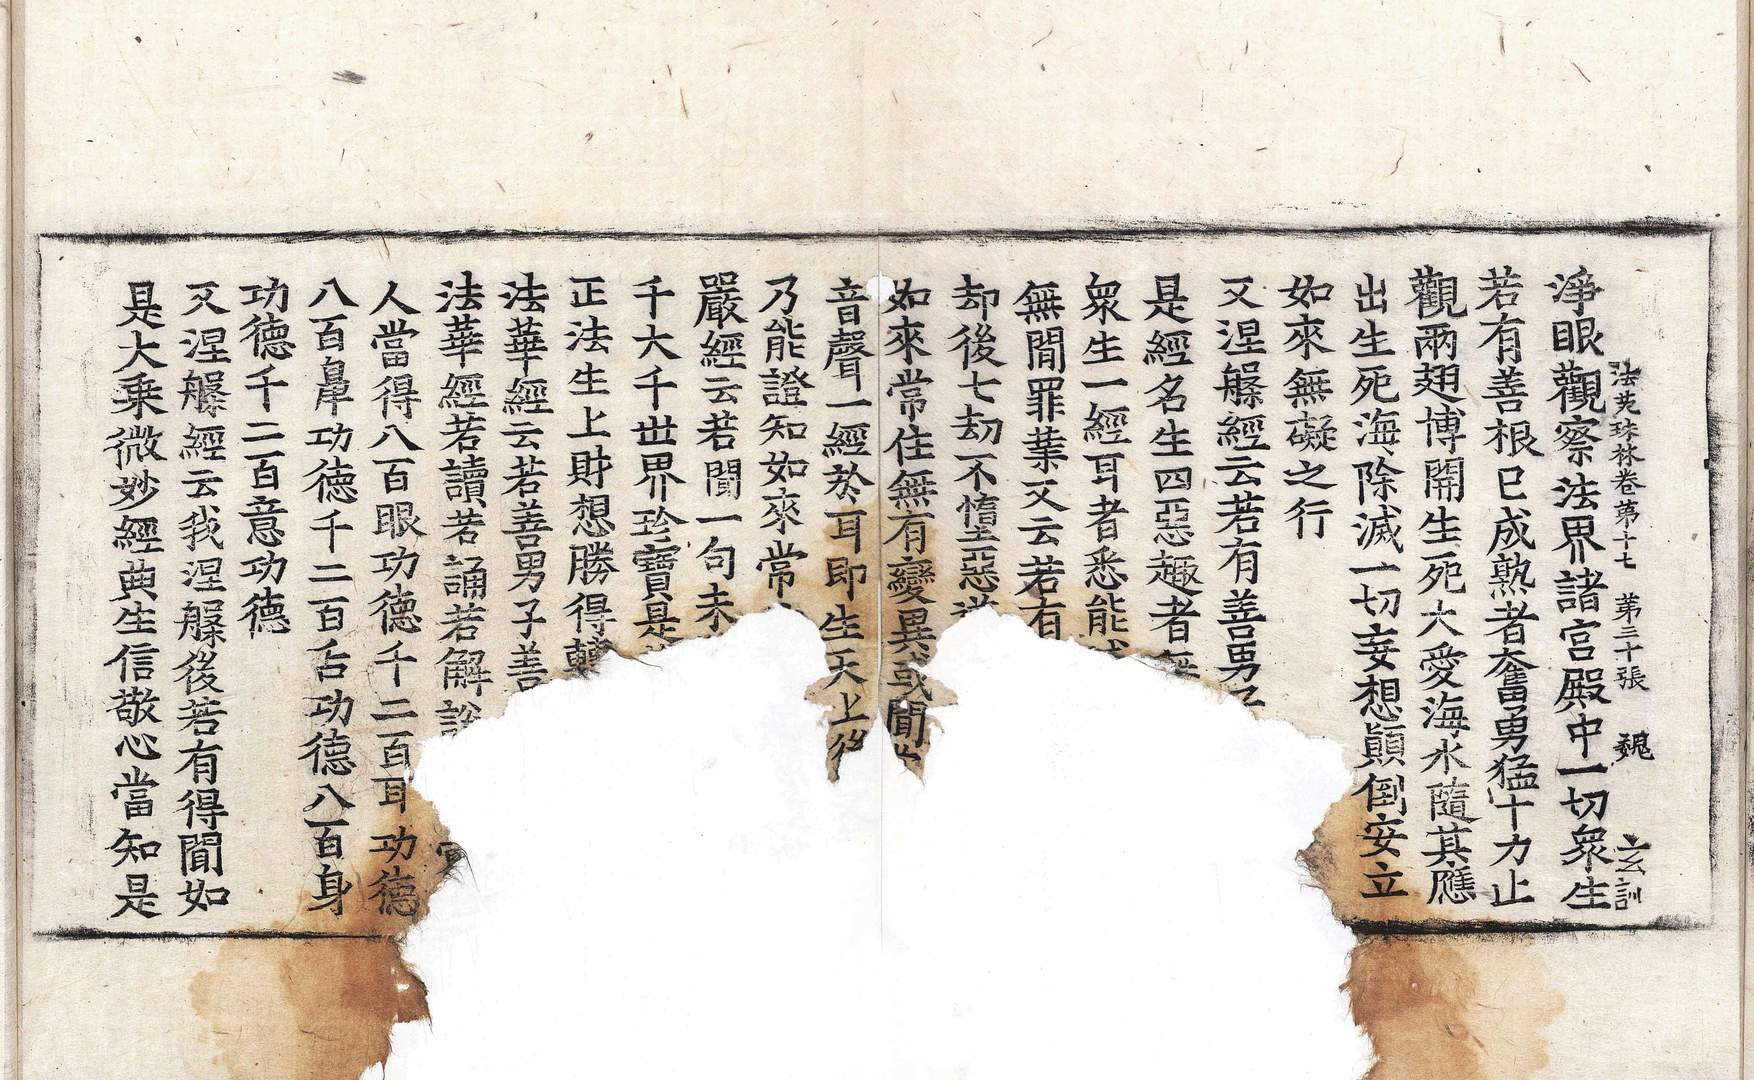 法苑珠林卷第十七　第三十張　魏　玄訓
淨眼觀察法界諸宮殿中一切衆生
若有善根已成熟者奮勇猛十力止
觀兩翅博開生死大愛海水隨其應
出生死海除滅一切妄想顚倒安立
如來無礙之行
又涅槃經云若有善男子
是經名生四惡趣者無
衆生一經耳者悉能
無間罪業又云若有
却後七劫不惰惡道
如來常住無有變異或聞常
音聲一經於耳即生天上後
乃能證知如來常
嚴經云若聞一句未
千大千世界珍寶是
正法生上財想勝得轉
法華經云若善男子善
法華經若讀若誦若解說
人當得八百眼功德千二百耳功德
八百鼻功德千二百舌功德八百身
功德千二百意功德
又涅槃經云我涅槃後若有得聞如
是大乘微妙經典生信敬心當知是